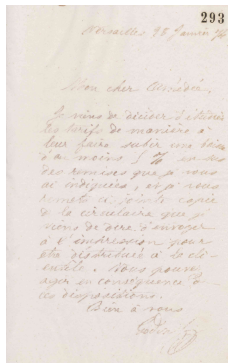 293
Versailles 25 Janvier
Mon cher Amédée,
Je viens de décider d'étendre
les tarifs de manière à
leur faire subir une baisse
d'au moins 5 % en sus
des remises que je vous
ai indiquées, et je vous
remets ci-joint copie
de la circulaire que je
viens de d'envoyer
à l'impression pour
être distribuée à la clientèle
. Vous pouvez
agir en conséquence de
ces dispositions.
Bien à vous
Godin